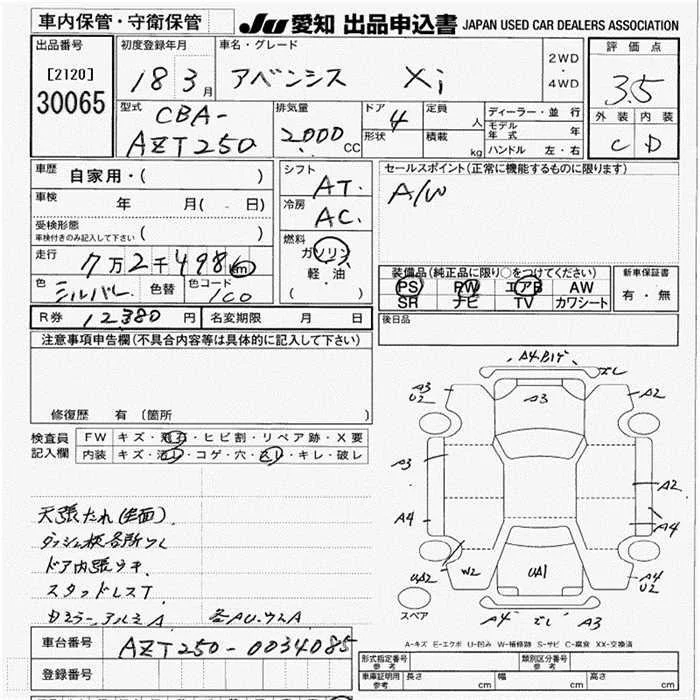 車内保管・守衛保管
JU 愛知 出品申込書 JAPAN USED CAR DEALERS ASSOCIATION
出品番号
[2120]
30065
初度登録年月
18 3月
車名・グレード
アベンシス Xi
2WD
・
4WD
評価点
3.5
外装 内装
C D
型式
CBA-
AZT250
排気量
2000 CC
ドア 4
形状
定員 人
積載 kg
ディーラー・並行
モデル年式 年
ハンドル 左・右
車歴 自家用・( )
車検 年 月( 日)
受検形態
車検付きのみ記入して下さい ( )
走行 7万2千498km
色 シルバー 色替 色コード 1C0
シフト AT.
冷房 AC.
燃料 ガソリン
軽油
( )
セールスポイント(正常に機能するものに限ります)
A/W
装備品(純正品に限り○をつけてください)
PS PW エアB AW
SR ナビ TV カワシート
新車保証書
有・無
R券 12,380円 名変期限 月 日
後日品
注意事項申告欄(不具合内容等は具体的に記入して下さい)
修復歴 有(箇所 )
検査員
記入欄
FW キズ・飛石・ヒビ割・リペア跡・X要
内装 キズ・汚レ・コゲ・穴・スレ・キレ・破レ
天張たれ(全面)
ドア内張ウキ
スタッドレスT
A3
U2
A4
A3
A2
A3
A4
A2
A4
UA2
W2
UA1
A4
U2
スペア
A4
A3
A-キズ E-エクボ U-凹み W-補修跡 S-サビ C-腐食 XX-交換済
車台番号 AZT250-0034085
登録番号
形式指定番号
参考
類別区分番号
参考
車庫証明用
参考
長さ cm 幅 cm 高さ cm